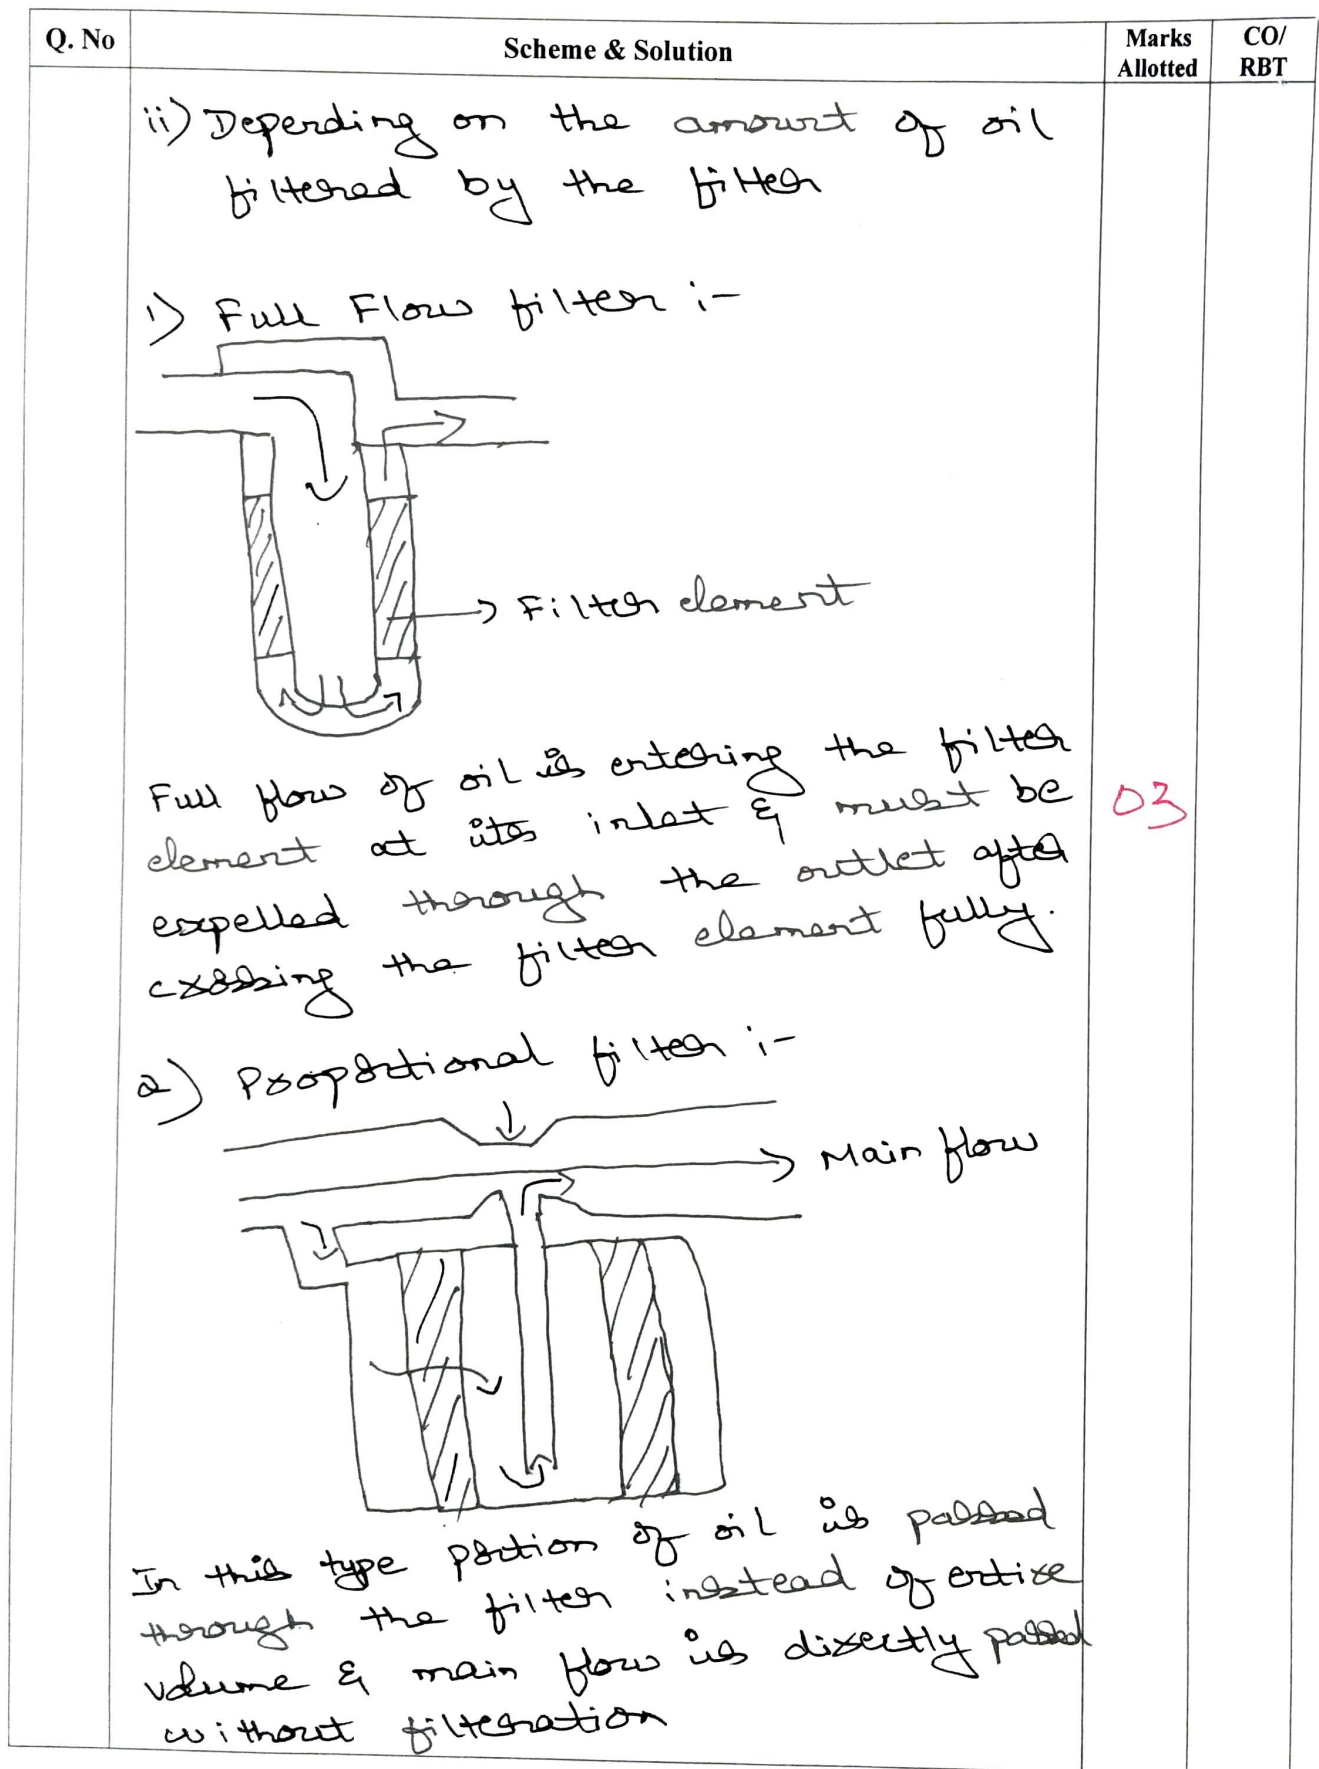 Q. No
Scheme & Solution
Marks Allotted
CO/ RBT
ii) Depending on the amount of oil
filtered by the filter
1) Full Flow filter :-
→ Filter element
Full flow of oil is entering the filter
element at its inlet & must be
expelled through the outlet after
crossing the filter element fully.
03
2) Proportional filter :-
Main flow
In this type portion of oil is passed
through the filter instead of entire
volume & main flow is directly passed
without filteration